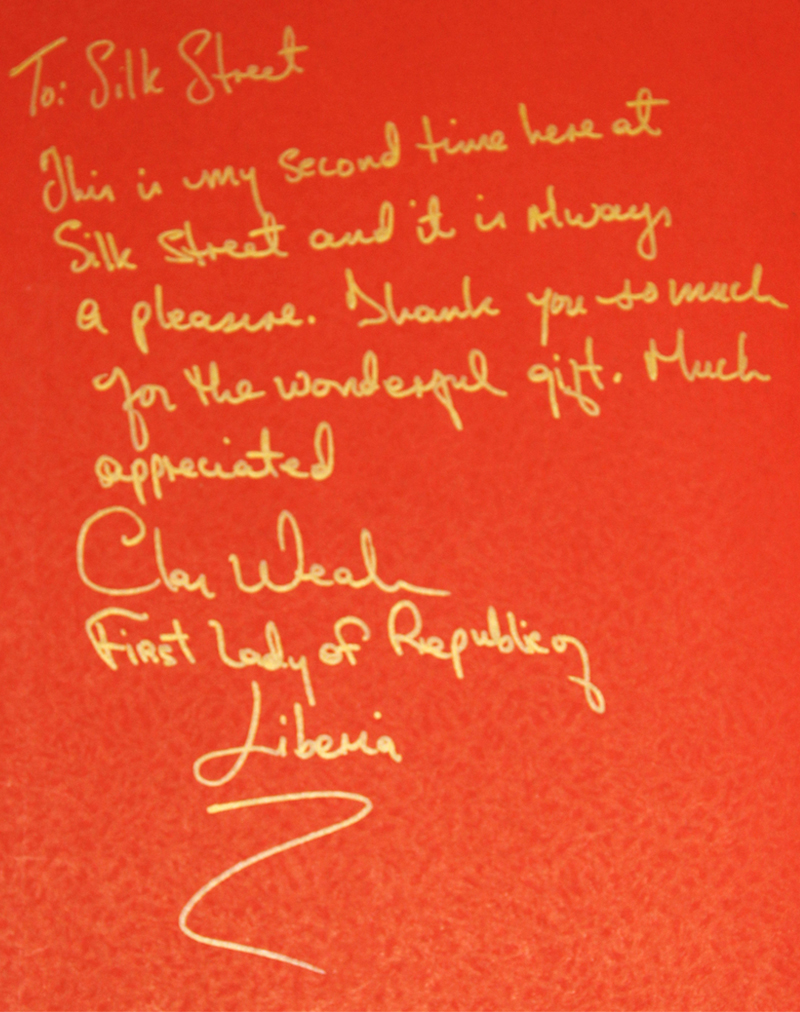 To: Silk Street
This is my second time here at
Silk Street and it is always
a pleasure. Thank you so much
for the wonderful gift. Much
appreciated
Clar Weah
First Lady of Republic of
Liberia